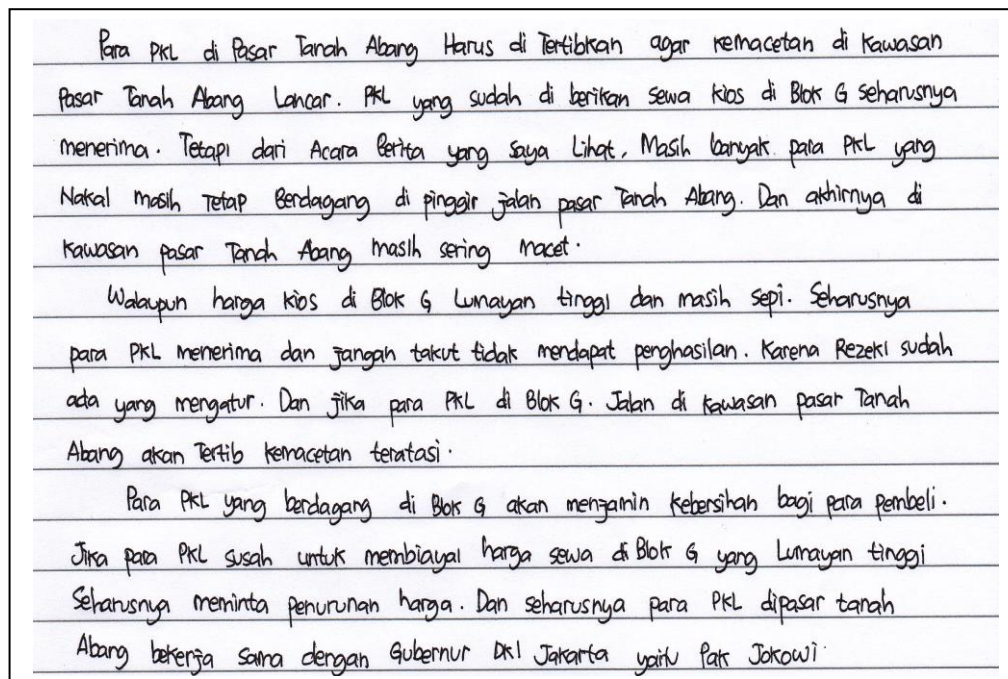 Para PKL di Pasar Tanah Abang Harus di Tertibkan agar kemacetan di Kawasan
Pasar Tanah Abang Lancar. PKL yang sudah di berikan sewa kios di Blok G seharusnya
menerima. Tetapi dari Acara Berita yang saya Lihat, Masih banyak para PKL yang
Nakal masih Tetap Berdagang di pinggir jalan pasar Tanah Abang. Dan akhirnya di
Kawasan pasar Tanah Abang masih sering macet.
Walaupun harga kios di Blok G Lumayan tinggi dan masih sepi. Seharusnya
para PKL menerima dan jangan takut tidak mendapat penghasilan. Karena Rezeki sudah
ada yang mengatur. Dan jika para PKL di Blok G. Jalan di kawasan pasar Tanah
Abang akan Tertib kemacetan teratasi.
Para PKL yang berdagang di Blok G akan menjamin kebersihan bagi para pembeli.
Jika para PKL susah untuk membiayai harga sewa di Blok G yang Lumayan tinggi
Seharusnya meminta penurunan harga. Dan seharusnya para PKL dipasar tanah
Abang bekerja sama dengan Gubernur DKI Jakarta yaitu Pak Jokowi.